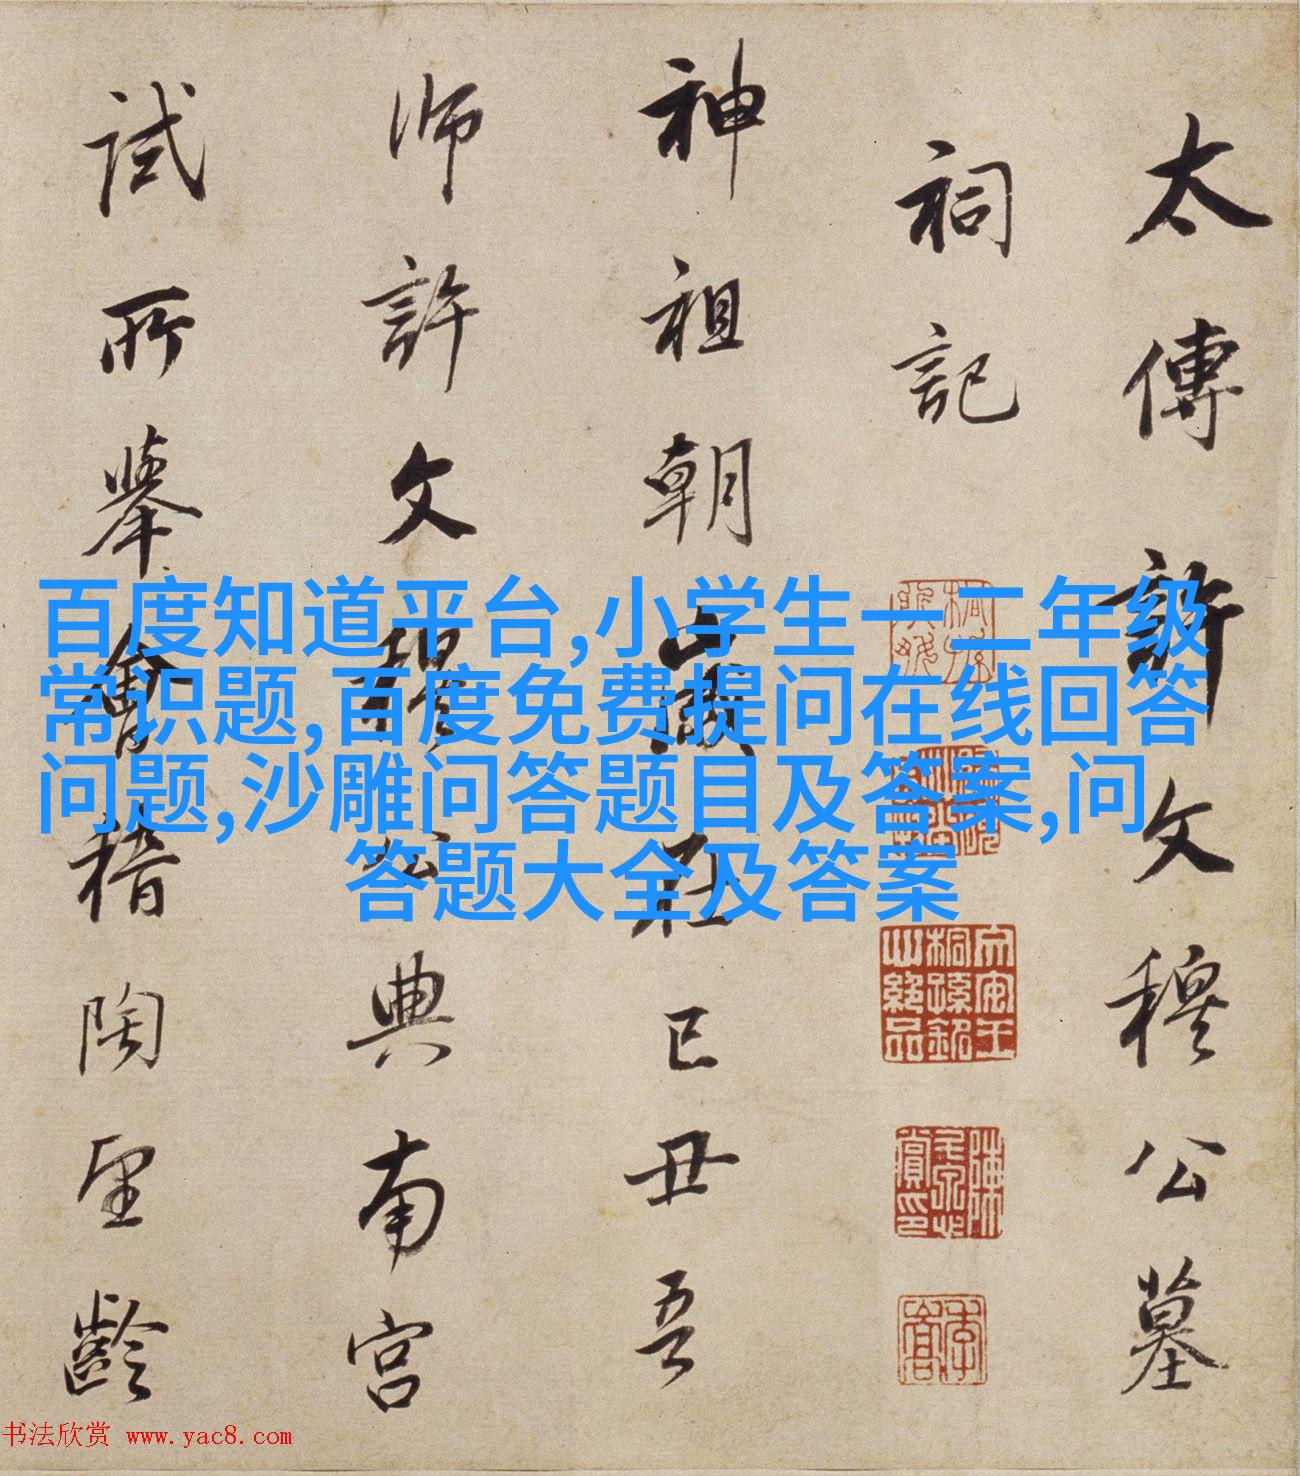 太傅許文穆公墓
祠記
神祖朝歲在己丑吾
師許文穆公典南宮
試所舉會稽陶望齡
百度知道平台,小学生一二年级
常识题,百度免费提问在线回答
问题,沙雕问答题目及答案,问
答题大全及答案
书法欣赏 www.yac8.com